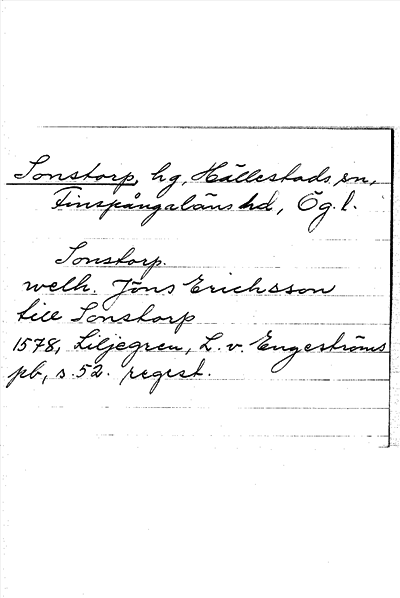 Sonstorp, hg, Hällestads sn,
Finspångaläns hd, Ög. l.
Sonstorp.
welb. Jöns Erichsson
till Sonstorp
1578, Liljegren, L. v. Engeströms
pb, s. 52. regist.